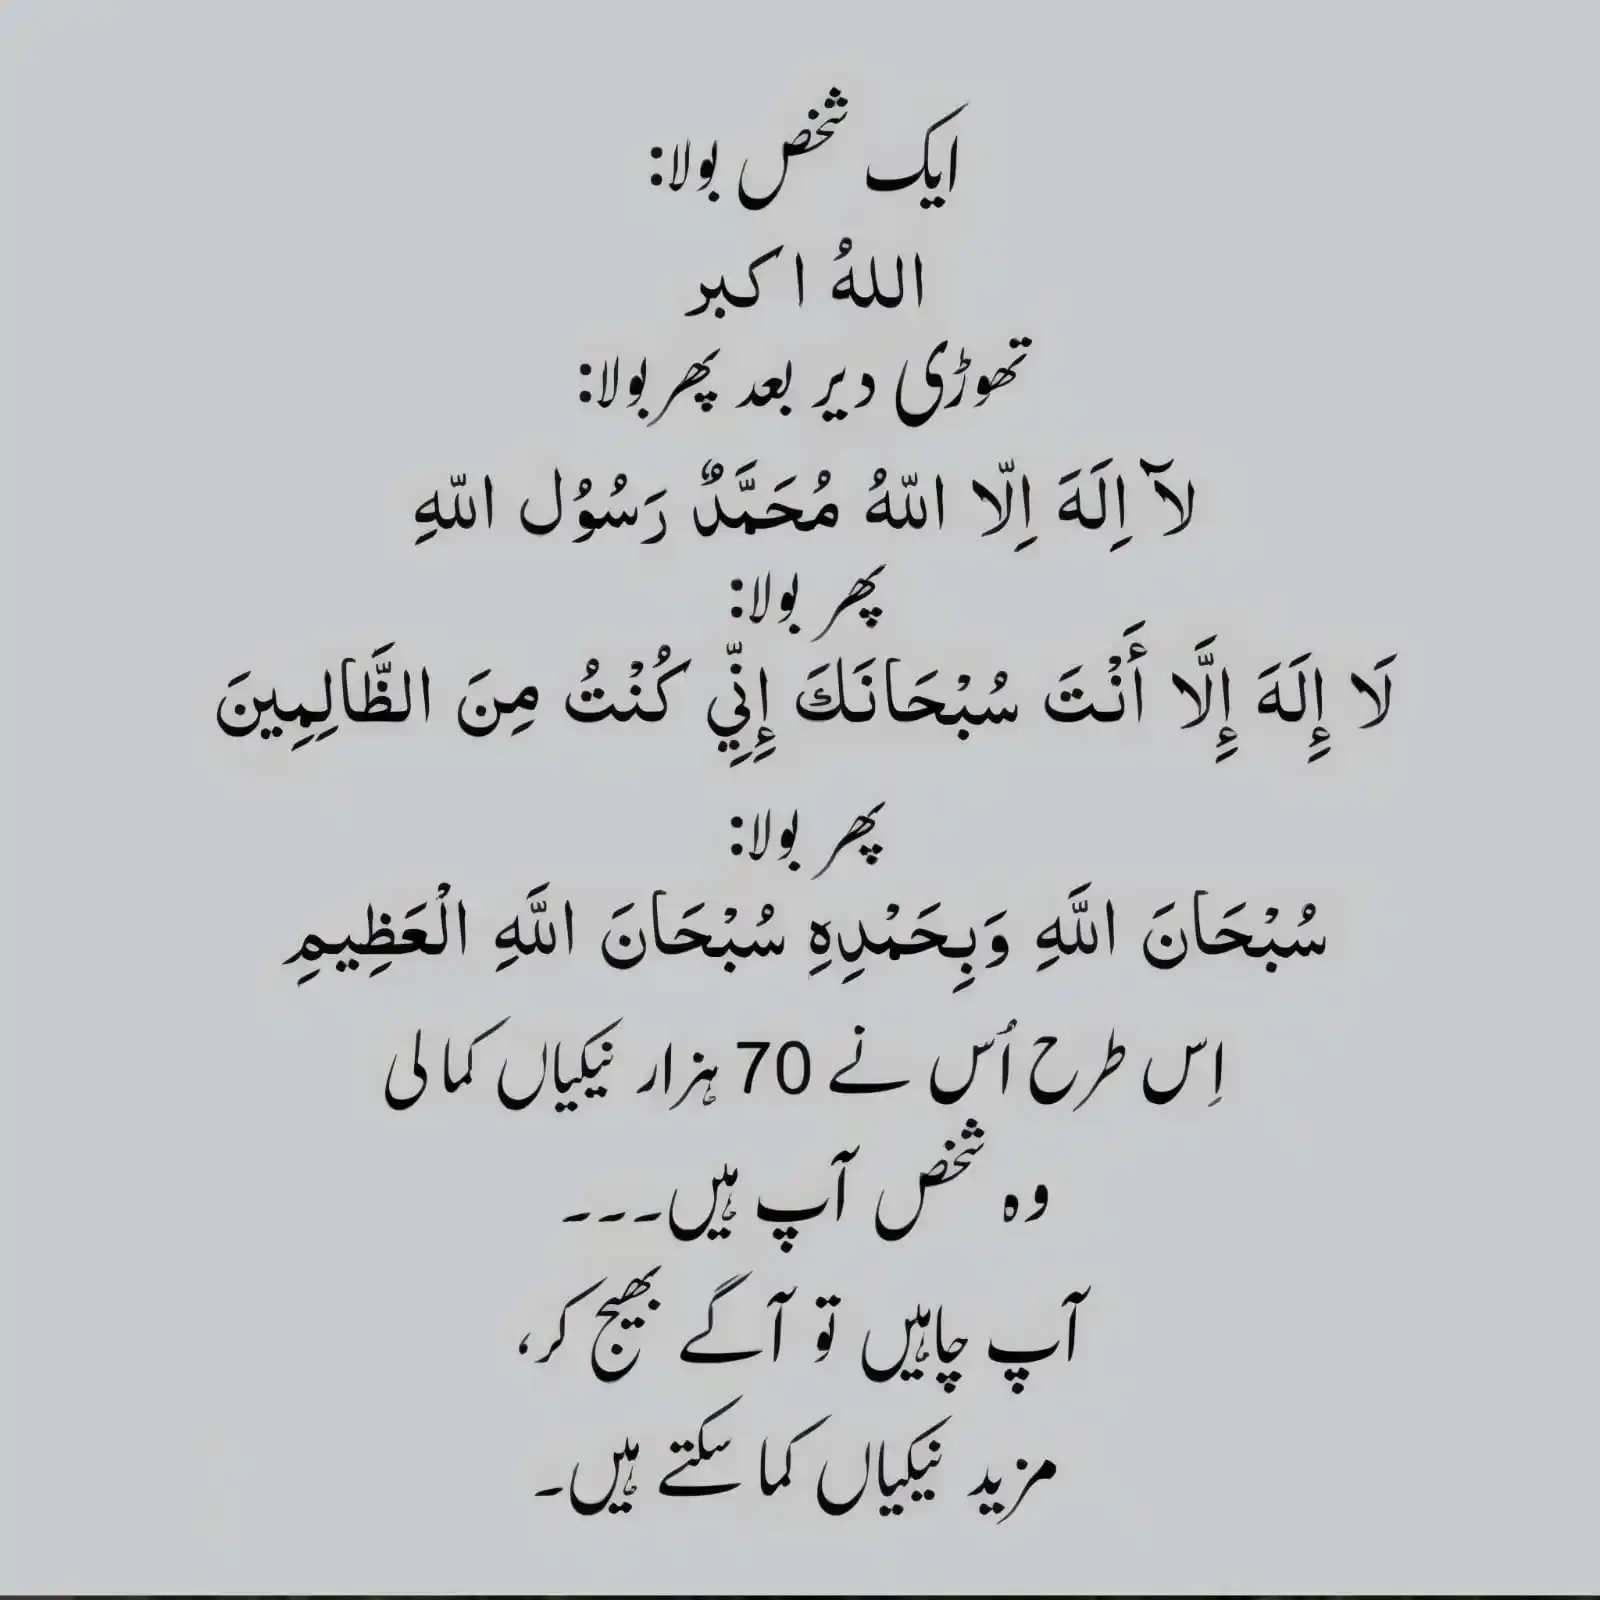 ایک شخص بولا:
اللہُ اکبر
تھوڑی دیر بعد پھر بولا:
لَآ اِلَهَ اِلَّا اللّٰهُ مُحَمَّدٌ رَسُوُل اللّٰهِ
پھر بولا:
لَا إِلَهَ إِلَّا أَنْتَ سُبْحَانَكَ إِنِّي كُنْتُ مِنَ الظَّالِمِينَ
پھر بولا:
سُبْحَانَ اللَّهِ وَبِحَمْدِهِ سُبْحَانَ اللَّهِ الْعَظِيمِ
اِس طرح اُس نے 70 ہزار نیکیاں کما لی
وہ شخص آپ ہیں۔۔۔
آپ چاہیں تو آگے بھیج کر،
مزید نیکیاں کما سکتے ہیں۔